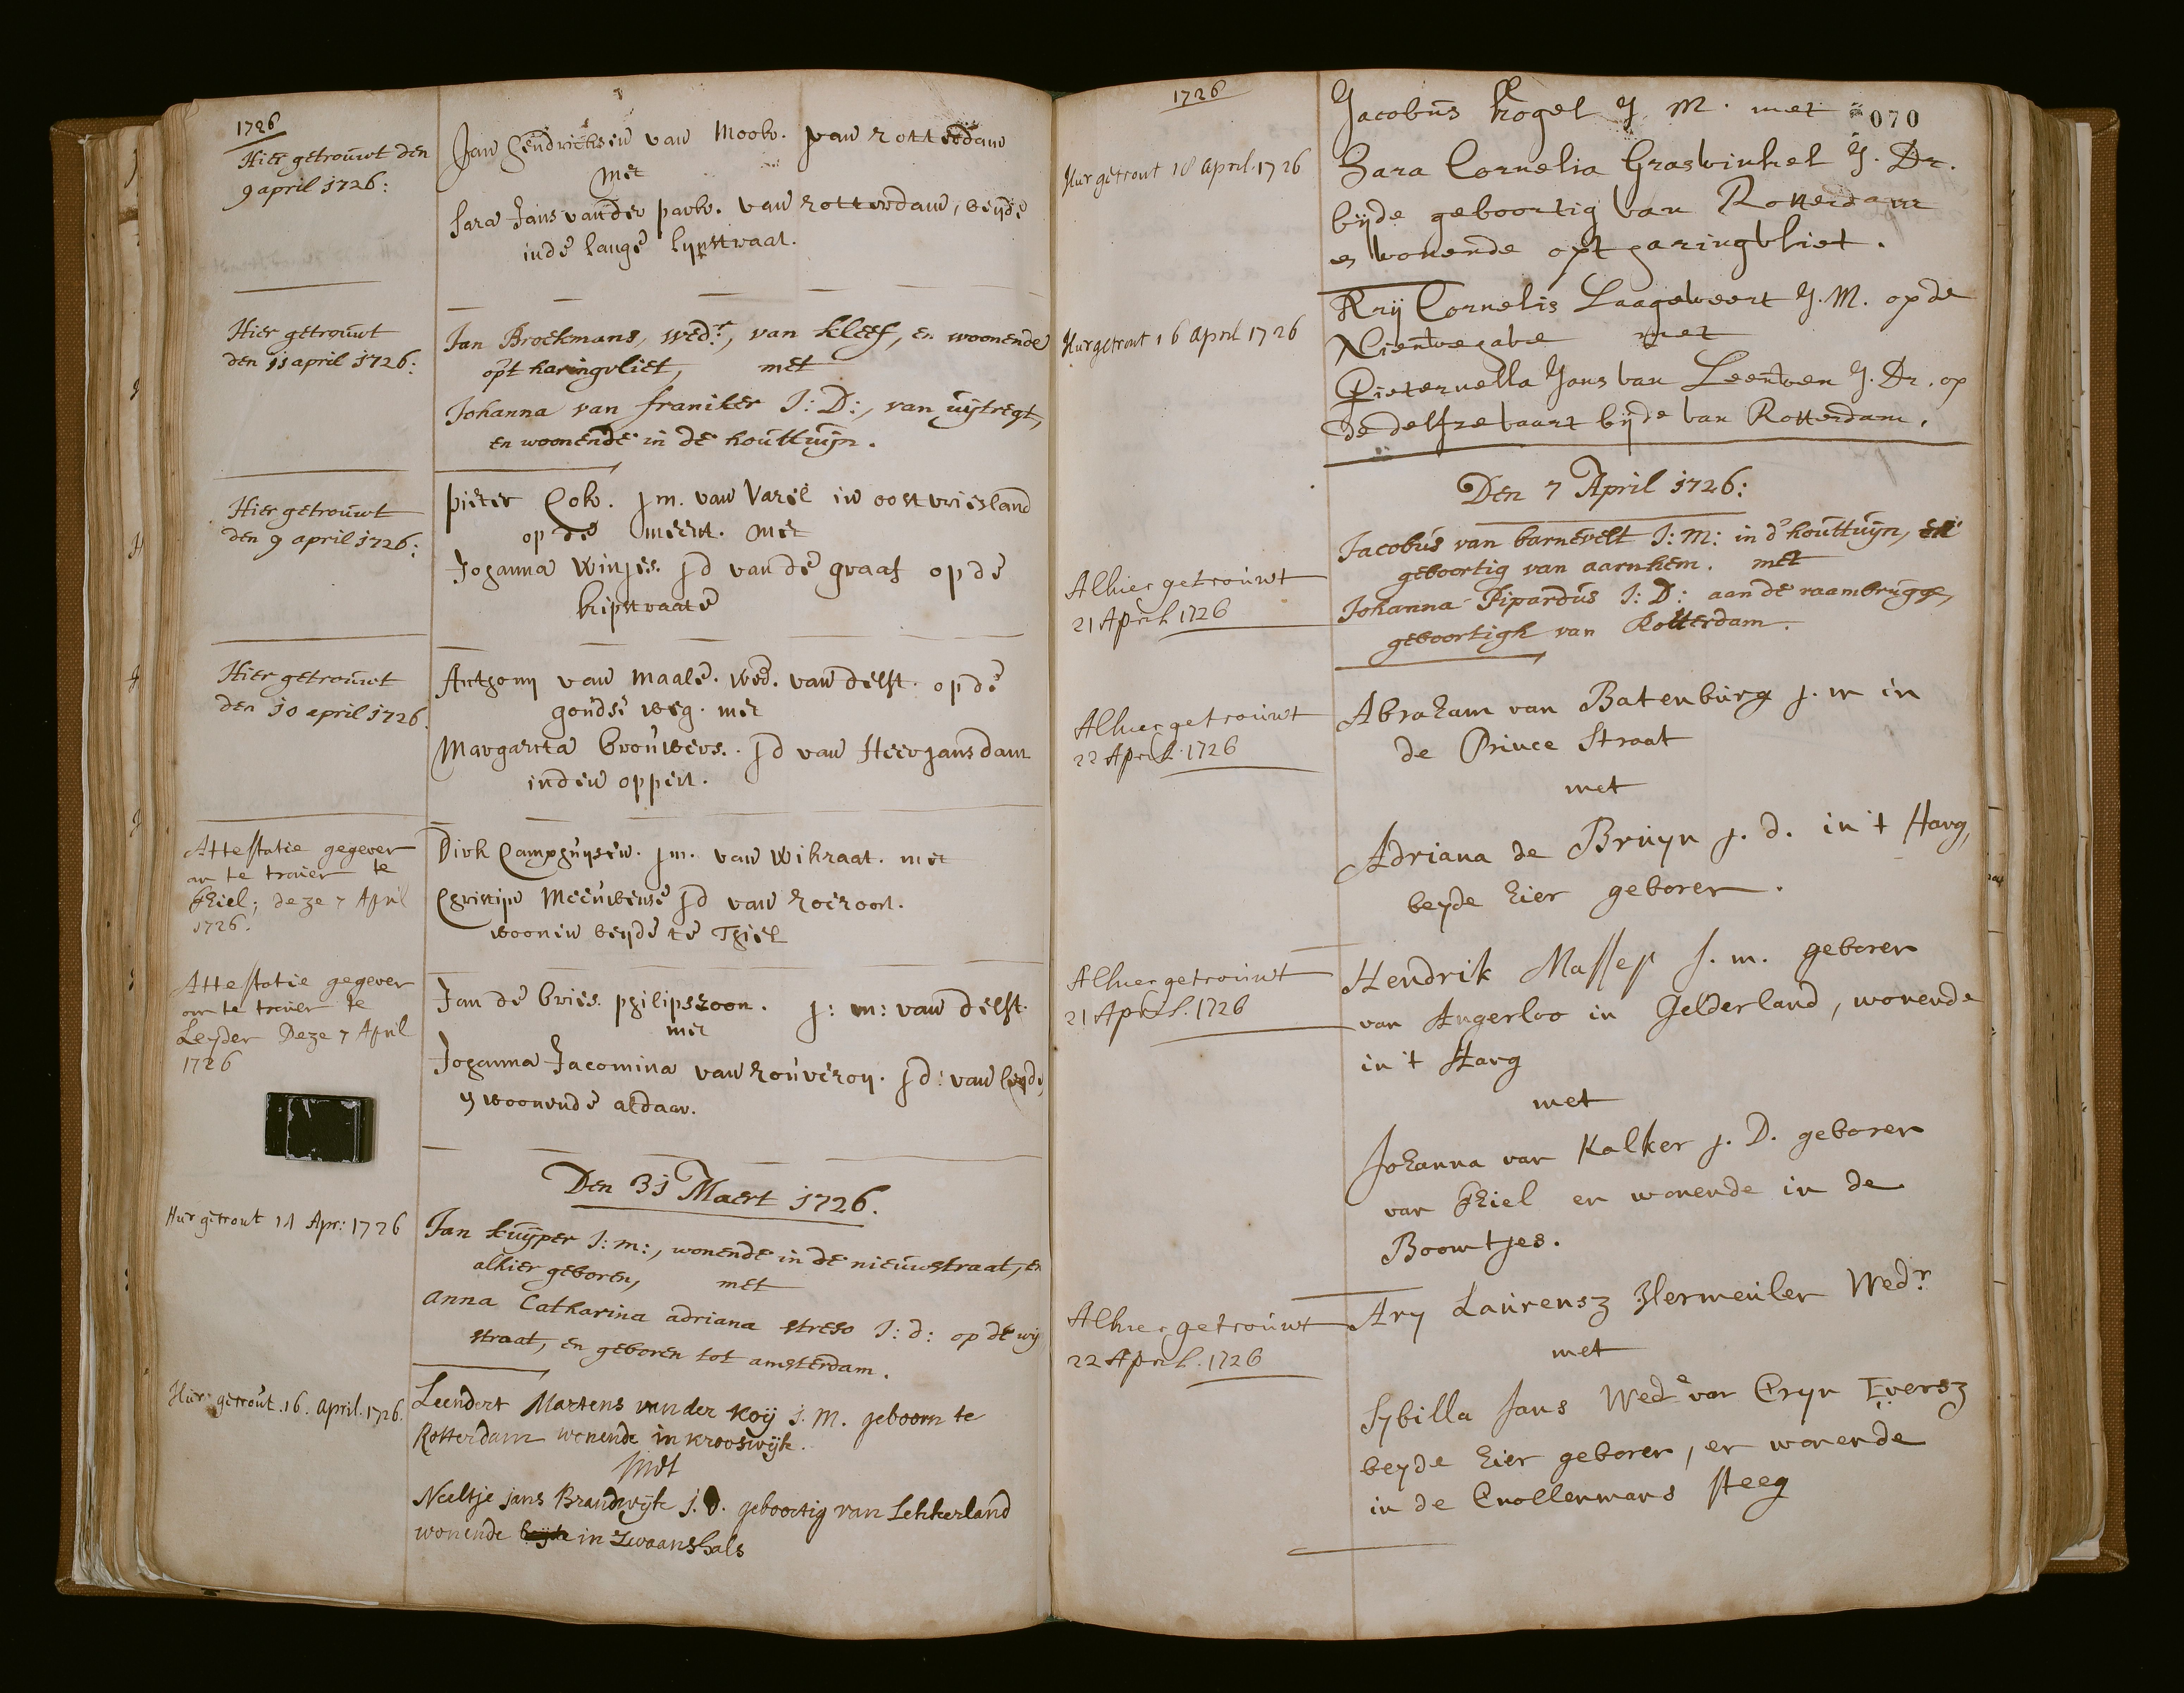 1726
Hier getrouwt den
9 april 1726:
Jan Hendricksen van Mook. van Rotterdam
met
Sara Jans vander park. van Rotterdam, beyde
inde lange lynstraat.
Hier getrouwt
den 11 april 1726:
Jan Broekmans, wedr, van Kleef, en woonende
op't haringvliet, met
Johanna van franiker J: D:, van uijtregt,
en woonende in de houttuijn.
Hier getrouwt
den 9 april 1726:
pieter Cok. jm. van Varel in oostvriesland
op de meent. met
Johanna Winjes. jd van de graaf op de
kipstraate
Hier getrouwt
den 10 april 1726.
Anthony van maale. wed. van delft. op de
goudse weg. met
Margareta brouwers. jd van Heerjansdam
inden oppert.
Attestatie gegeven
om te trouen te
Thiel; deze 7 April
1726.
Dirk Camphuysen. jm. van Wikraat. met
Christijn Meeuwense jd van
woonen beyde te Thiel
Attestatie gegeven
om te trouen te
Leyden Deze 7 April
1726
Jan de Vries. philipszoon. j: m: van delft.
met
Johanna Jacomina van Rouveroy. jd: van Leyde,
en woonende aldaar.
Den 31 Maert 1726.
Hier getrout 14 Apr: 1726
Jan kuijper J: m:, wonende in de nieuwstraat, en
alhier geboren, met
Anna Catharina adriana streso J: d: op de wij
straat, en geboren tot amsterdam.
Hier getrout. 16. April. 1726.
Leendert Martens vander Koij j. M. geboorn te
Rotterdam wonende in krooswijk.
Met
Neeltje jans Brandwijk j. D. geboortig van Lekkerland
wonende in Zwaanshals
1726
070
Hier getrout 18 April. 1726
Jacobus Kogel J. M. met
Zara Cornelia Graswinkel J. Dr.
bijde geboortig van Rotterdam
en wonende opt haringvliet.
Hier getrout 16 April 1726
Krij Cornelis Laageweert J. M. op de
Nieuwegave met
Pieternella Jans van Leeuwen J. Dr. op
de delfzevaart bijde van Rotterdam.
Den 7 April 1726:
Alhier getrouwt
21 April 1726
Jacobus van barnevelt J: M: in d'houttuijn, en
geboortig van aarnhem. met
Johanna Pipardus J: D: aan de raambrugge,
geboortigh van Rotterdam.
Alhier getrouwt
22 April. 1726
Abraham van Batenburg j. m in
de Prince Straat
met
Adriana de Bruyn j. d. in't Hang,
beyde hier geboren.
Alhier getrouwt
21 April. 1726
Hendrik Massep j. m. geboren
van Angerloo in Gelderland, wonende
in't Hang
met
Johanna van Kalker j. D. geboren
van Thiel en wonende in de
Boomtjes.
Alhier getrouwt
22 April. 1726
Ary Laurensz Vermeulen Wedr
met
Sybilla Jans Wede van Cryn Eversz
beyde hier geboren, en wonende
in de Crollermans steeg